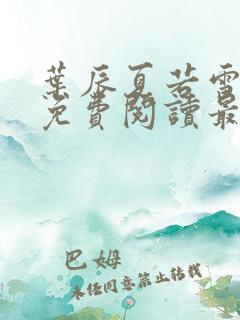 葉辰夏若雪
免費閱讀最
巴姆
未经同意禁止转载